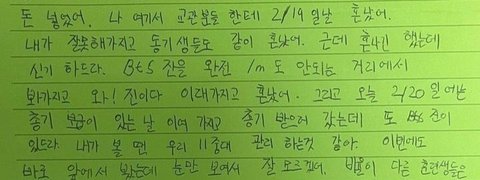 돈 넣었어. 나 여기서 교관분들 한테 2/19 일날 혼났어.
내가 잘못해가지고 동기생들도 같이 혼났어. 근데 혼나긴 했는데
신기 하드라. BtS 진을 완전 1m 도 안되는 거리에서
봐가지고 와! 진이다 이래가지고 혼났어. 그리고 오늘 2/20 일 어는
총기 보급이 있는 날 이여 가지고 총기 받으러 갔는데 또 BtS 진이
있드라. 내가 볼 땐 우리 11중대 관리 하는것 같아. 이번에도
바로 앞에서 봤는데 눈만 보여서 잘 모르겠어. 비율이 다른 훈련생들은